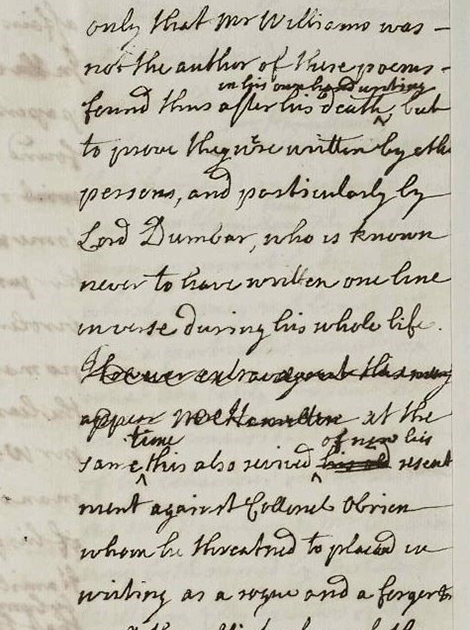 only that Mr Williams was -
not the author of these poems -
in his own hand writing
found thus after his death, but
to prove they were written by othe
persons, and particularly by
Lord Dumbar, who is known
never to have written one line
in verse during his whole life.
However extravagant this may
appear at the
time of new his
same this also revived resent
ment against Collonel Obrien
whom he threatned to placard in
writing as a rogue and a forger